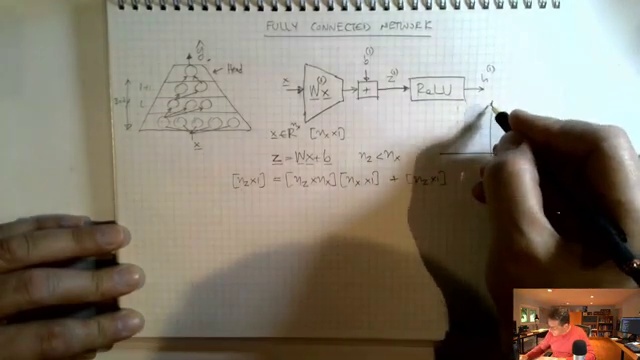 FULLY CONNECTED NETWORK
Head
L+1
L
x
x
W^(1) x
+
b^(1)
z^(1)
ReLU
h^(1)
x ∈ R^nx [nx x 1]
z = Wx + b nz < nx
[nz x 1] = [nz x nx] [nx x 1] + [nz x 1]